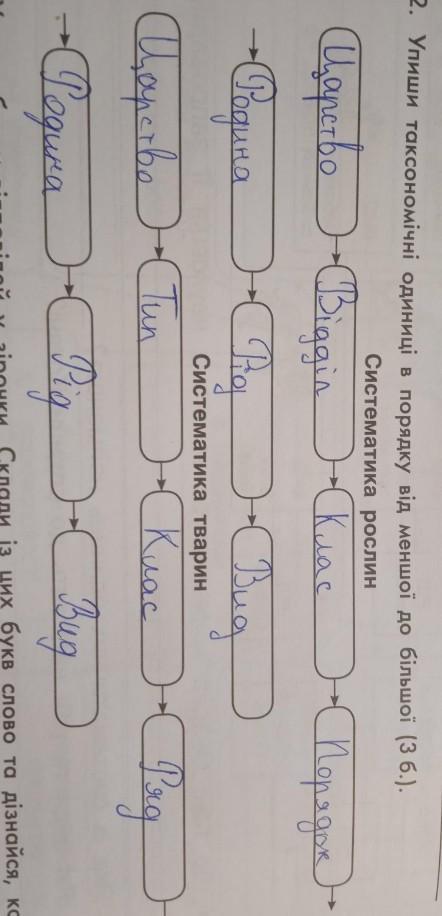 2. Упиши таксономічні одиниці в порядку від меншої до більшої (3 б.).
Систематика рослин
Царство Відділ Клас Порядок
Родина Рід Вид
Систематика тварин
Царство Тип Клас Ряд
Родина Рід Вид
у зірочки. Склади із цих букв слово та дізнайся,